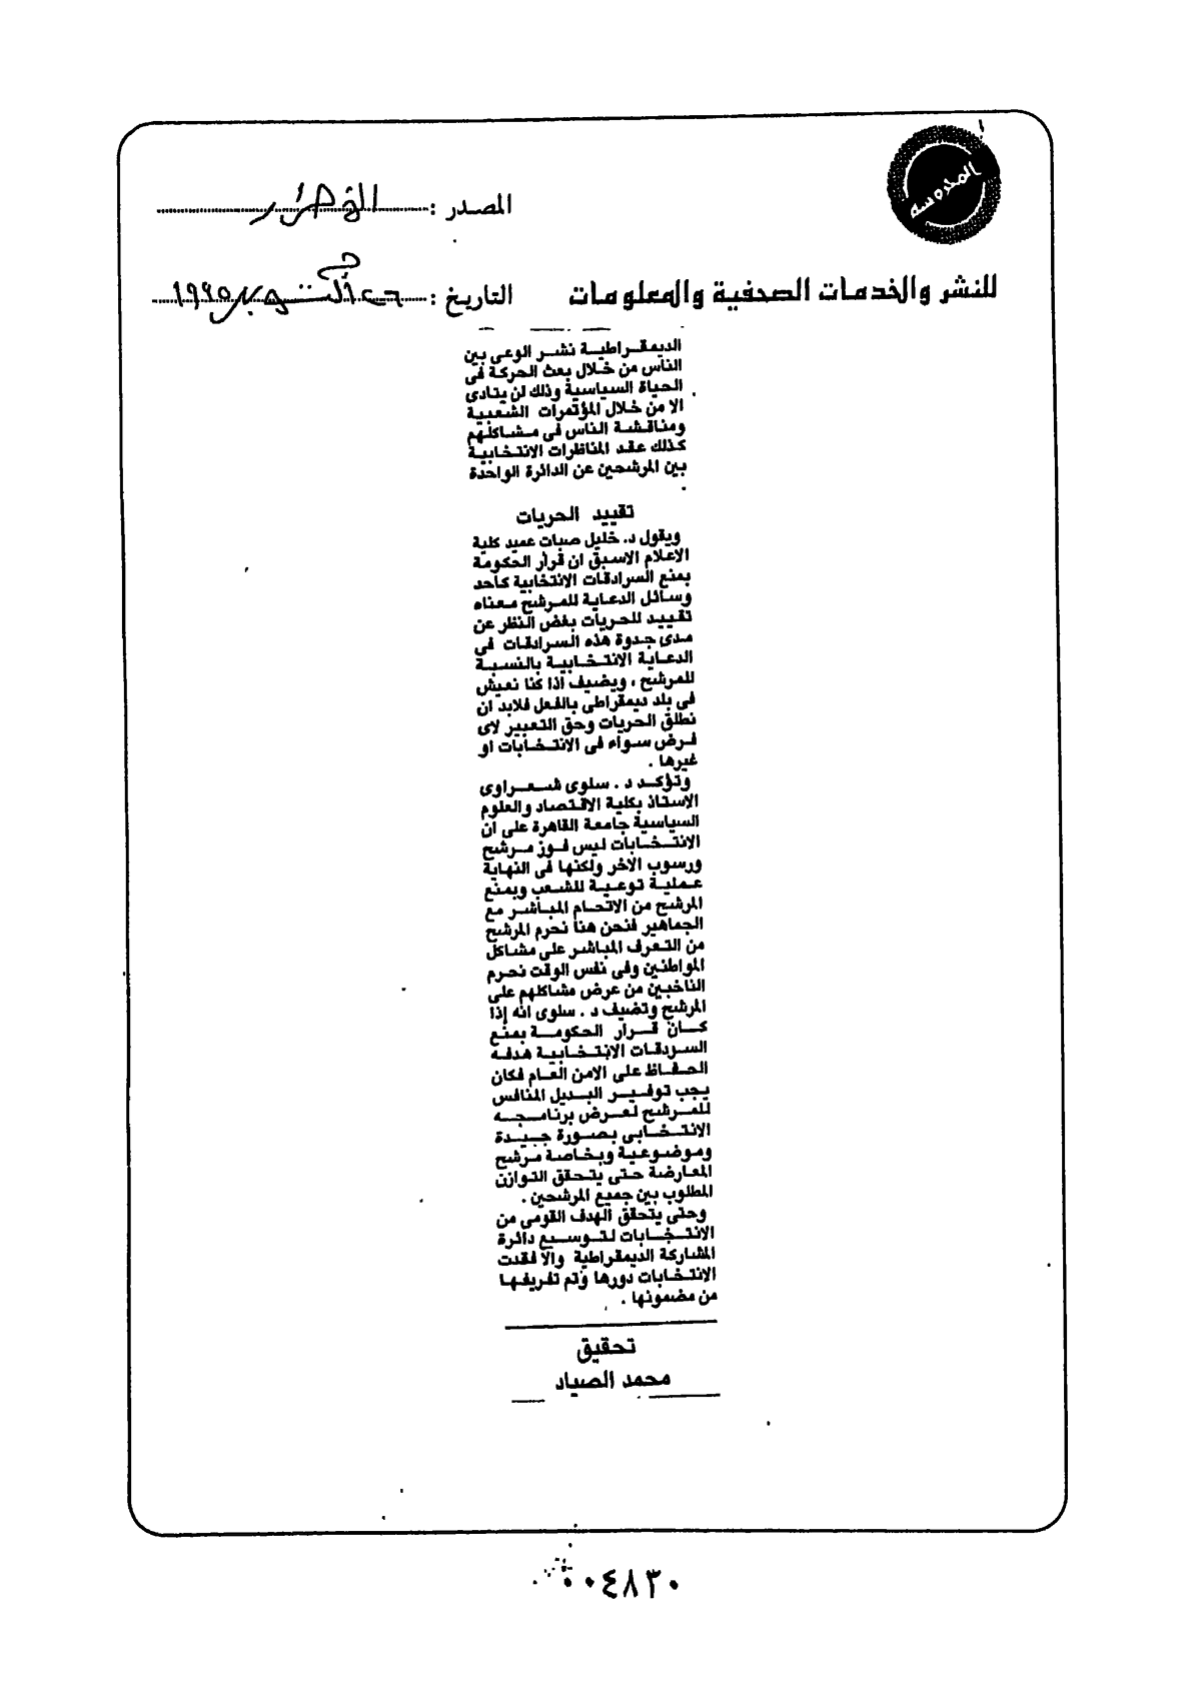 المحروسه
المصدر : الأحرار
للنشر والخدمات الصحفية والمعلومات
التاريخ : ٢٦ أكتوبر ١٩٩٥
الديمقراطية نشر الوعى بين
الناس من خلال بعث الحركة فى
الحياة السياسية وذلك لن يتادى
الا من خلال المؤتمرات الشعبية
ومناقشة الناس فى مشاكلهم
كذلك عقد المناظرات الانتخابية
بين المرشحين عن الدائرة الواحدة
تقييد الحريات
ويقول د. خليل صبات عميد كلية
الاعلام الاسبق ان قرار الحكومة
بمنع السرادقات الانتخابية كاحد
وسائل الدعاية للمرشح معناه
تقييد للحريات بغض النظر عن
مدى جدوة هذه السرادقات فى
الدعاية الانتخابية بالنسبة
للمرشح ، ويضيف اذا كنا نعيش
فى بلد ديمقراطى بالفعل فلابد ان
نطلق الحريات وحق التعبير لاى
فرض سواء فى الانتخابات او
غيرها .
وتؤكد د . سلوى شعراوى
الاستاذ بكلية الاقتصاد والعلوم
السياسية جامعة القاهرة على ان
الانتخابات ليس فوز مرشح
ورسوب الاخر ولكنها فى النهاية
عملية توعية للشعب وبمنع
المرشح من الاتحام المباشر مع
الجماهير فنحن هنا نحرم المرشح
من التعرف المباشر على مشاكل
المواطنين وفى نفس الوقت نحرم
الناخبين من عرض مشاكلهم على
المرشح وتضيف د . سلوى انه إذا
كان قرار الحكومة بمنع
السردقات الانتخابية هدفه
الحفاظ على الامن العام فكان
يجب توفير البديل المنافس
للمرشح لعرض برنامجه
الانتخابى بصورة جيدة
وموضوعية وبخاصة مرشح
المعارضة حتى يتحقق التوازن
المطلوب بين جميع المرشحين .
وحتى يتحقق الهدف القومى من
الانتخابات لتوسيع دائرة
المشاركة الديمقراطية والا فقدت
الانتخابات دورها وتم تفريغها
من مضمونها .
تحقيق
محمد الصياد
٠٠٤٨٣٠